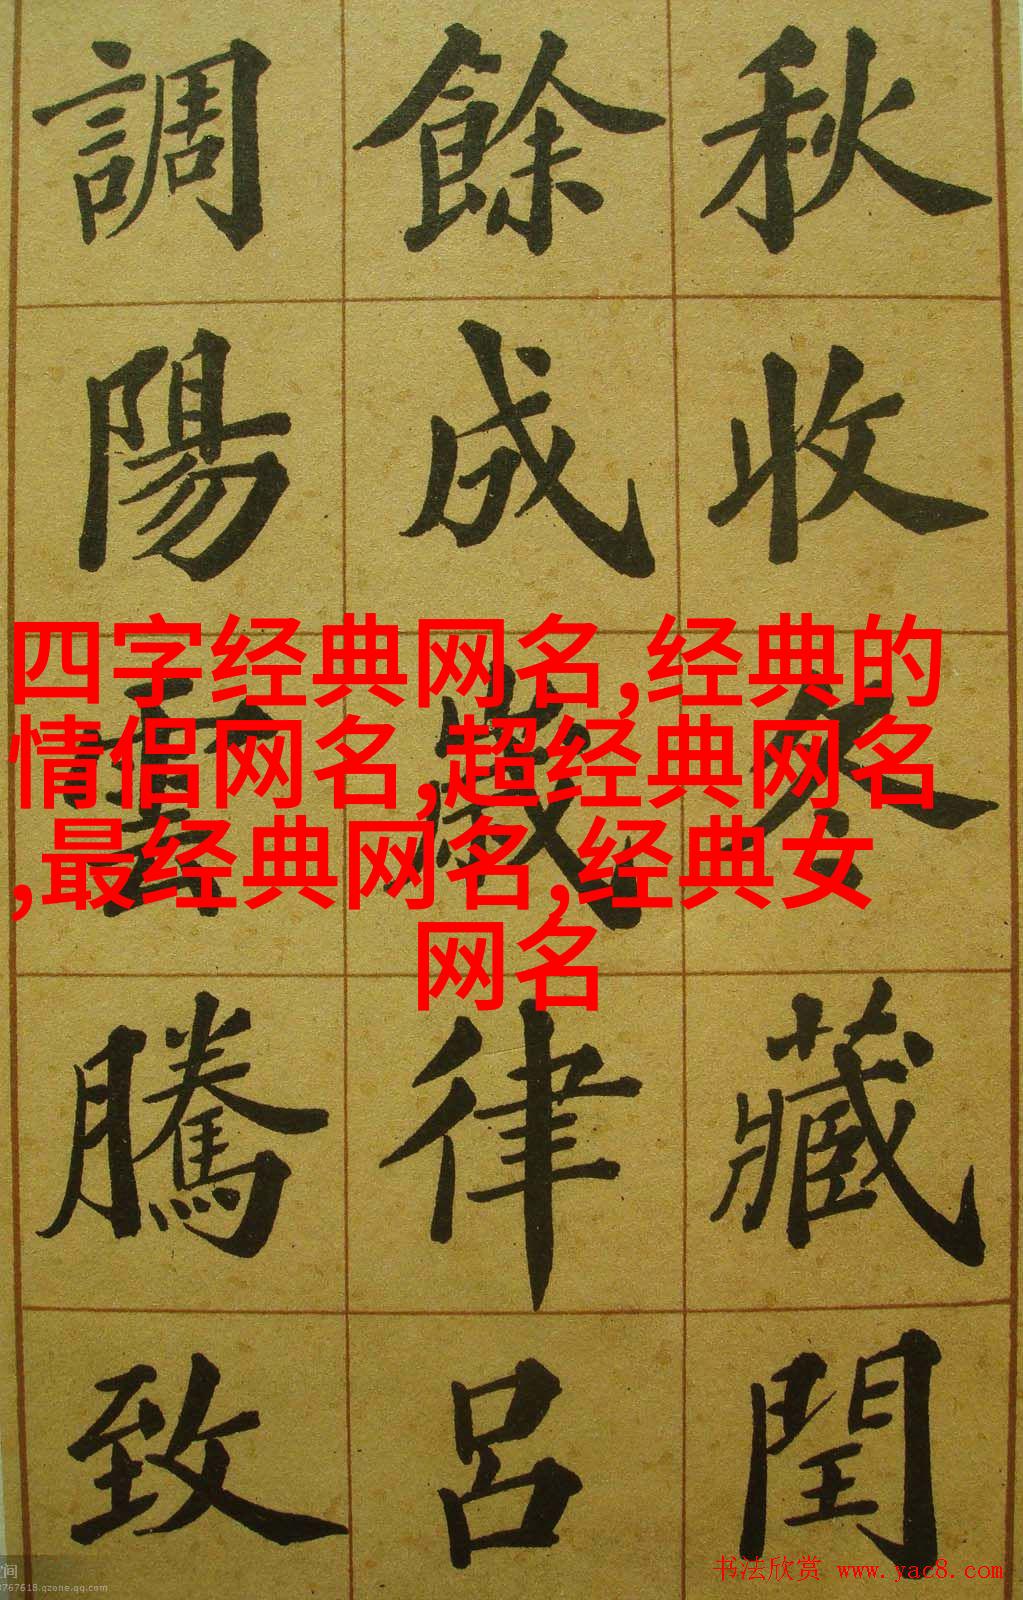 秋收冬藏閏
餘成歲律呂
調陽雲騰致
四字经典网名,经典的
情侣网名,超经典网名
,最经典网名,经典女
网名
书法欣赏 www.yac8.com
空间
3767618.qzone.qq.com